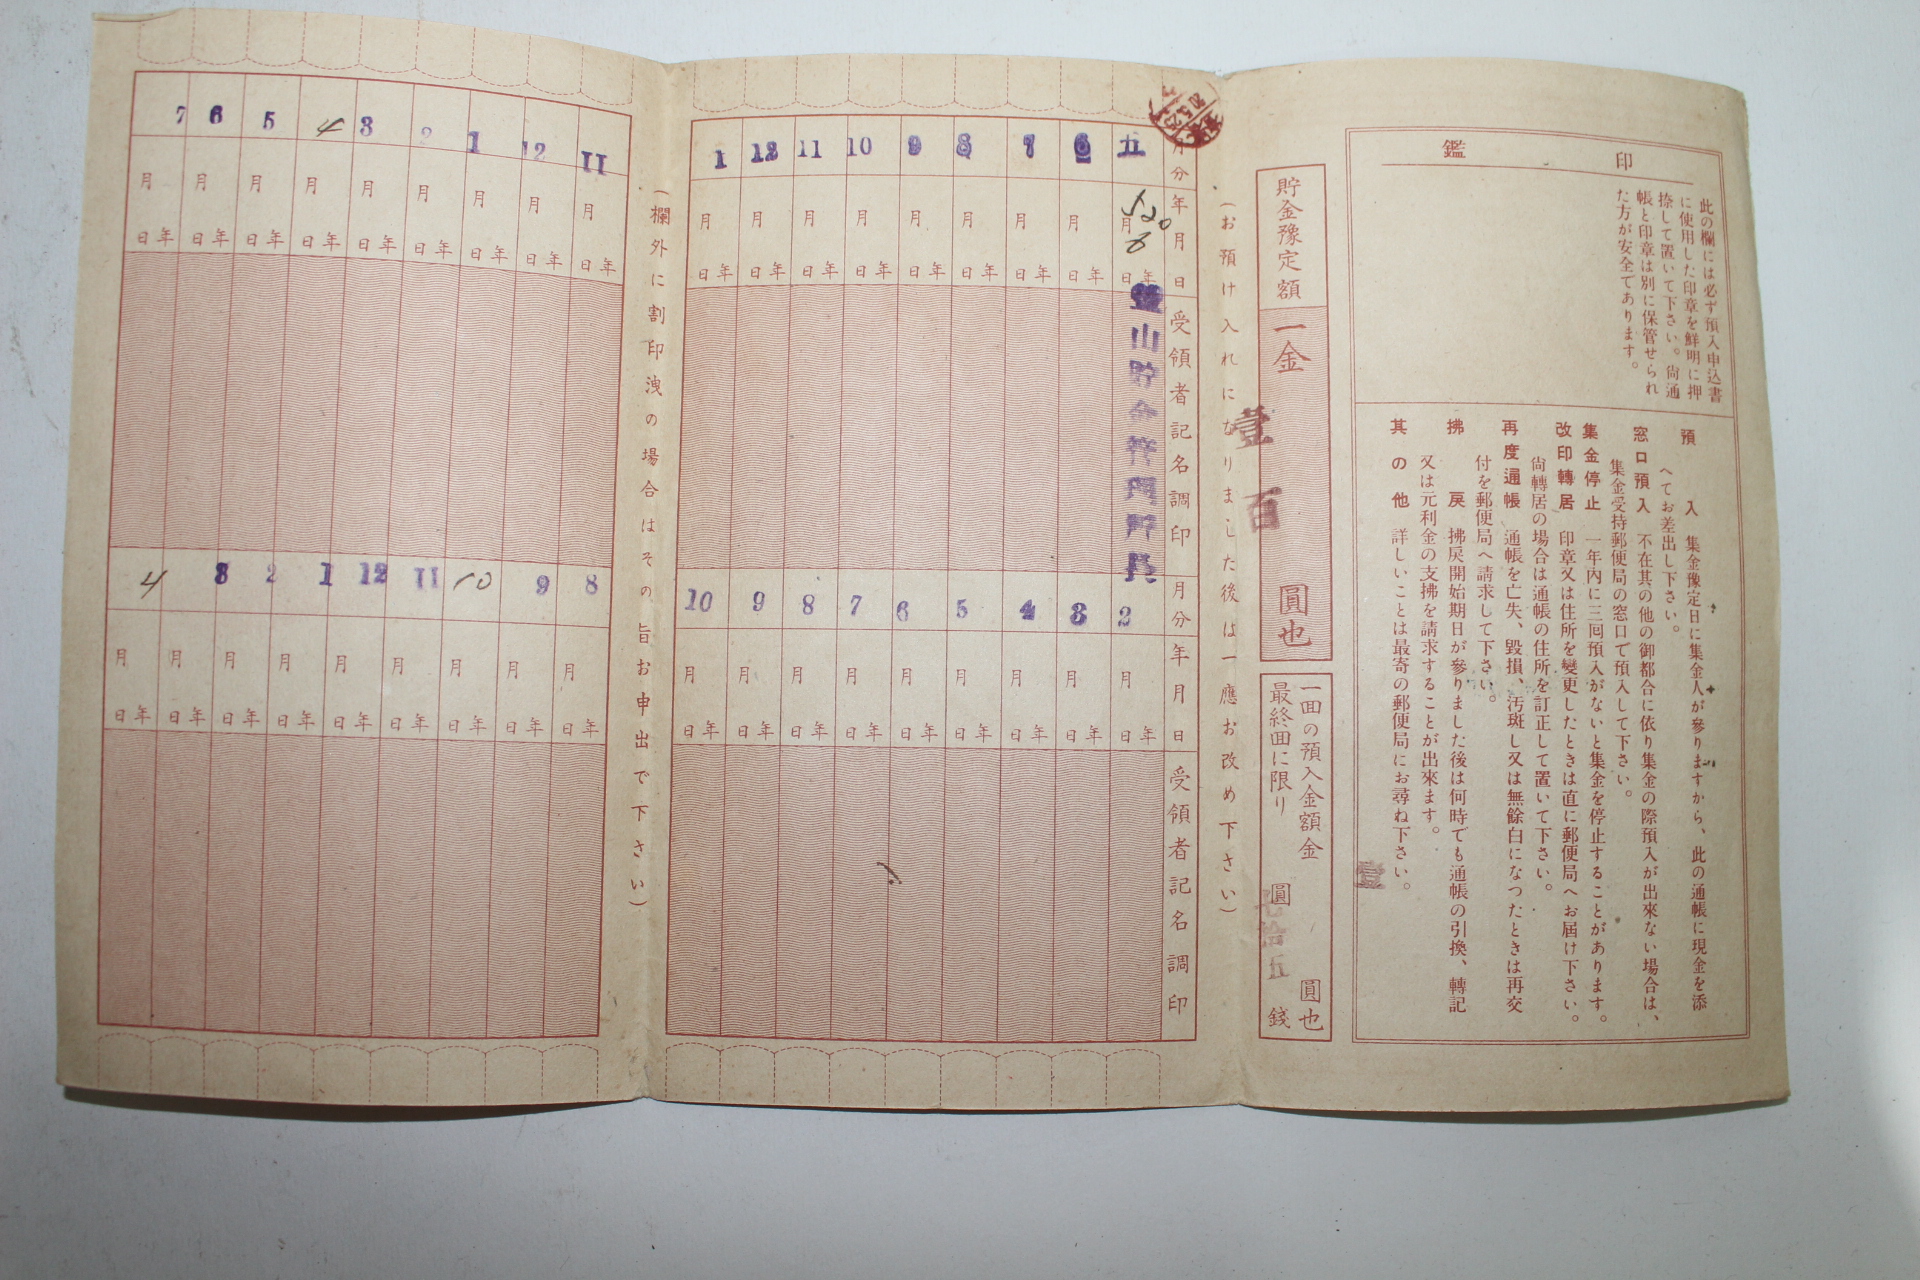 印鑑
此の欄には必ず預入申込書
に使用した印章を鮮明に押
捺して置いて下さい。尙通
帳と印章は別に保管せられ
た方が安全であります。
預入 集金豫定日に集金人が參りますから、此の通帳に現金を添
へてお差出し下さい。
窓口預入 不在其の他の御都合に依り集金の際預入が出來ない場合は、
集金受持郵便局の窓口で預入して下さい。
集金停止 一年內に三囘預入がないと集金を停止することがあります。
改印轉居 印章又は住所を變更したときは直に郵便局へお屆け下さい。
尙轉居の場合は通帳の住所を訂正して置いて下さい。
再度通帳 通帳を亡失、毀損、汚斑し又は無餘白になつたときは再交
付を郵便局へ請求して下さい。
拂戾 拂戾開始期日が參りました後は何時でも通帳の引換、轉記
又は元利金の支拂を請求することが出來ます。
其の他 詳しいことは最寄の郵便局にお尋ね下さい。
壹
貯金豫定額
一金 壹百 圓也
一囘の預入金額金 圓也
最終囘に限り 圓 拾五 錢
(お預け入れになりました後は一應お改め下さい)
月分
年月日
受領者記名調印
6 7 8 9 10 11 12 1
年月日 年月日 年月日 年月日 年月日 年月日 年月日 年月日 年月日
月分
年月日
受領者記名調印
2 3 4 5 6 7 8 9 10
年月日 年月日 年月日 年月日 年月日 年月日 年月日 年月日 年月日
(欄外に割印洩の場合はその旨お申出で下さい)
11 12 1 2 3 4 5 6 7
年月日 年月日 年月日 年月日 年月日 年月日 年月日 年月日 年月日
8 9 10 11 12 1 2 3 4
年月日 年月日 年月日 年月日 年月日 年月日 年月日 年月日 年月日